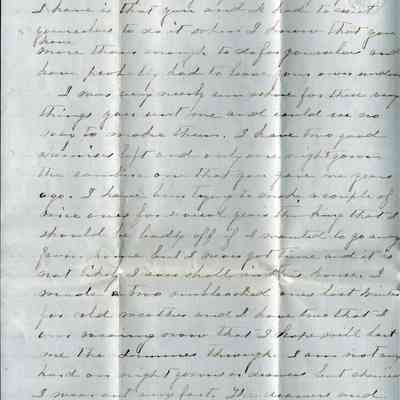 I have is that you and A had to want
yourselves to do it when I know that you
have
more than enough to do for yourselves and
have probably had to leave your own undone
I was very nearly in where for these very
things you sent me and could see no
way to make them. I have two good
chemises left and only one nightgown
the one that you gave me years
ago. I have been trying to make a couple of
nice ones for several years thinking that I
should be badly off if I wanted to go any
from home but I never got time and it is
not likely I ever shall in this house. I
made two unbleached ones last winter
for cold weather and I have two that I
am wearing now that I hope will last
me the summer through. I am not very
hard on night gowns or drawers but chemises
I wear out very fast. The drawers and